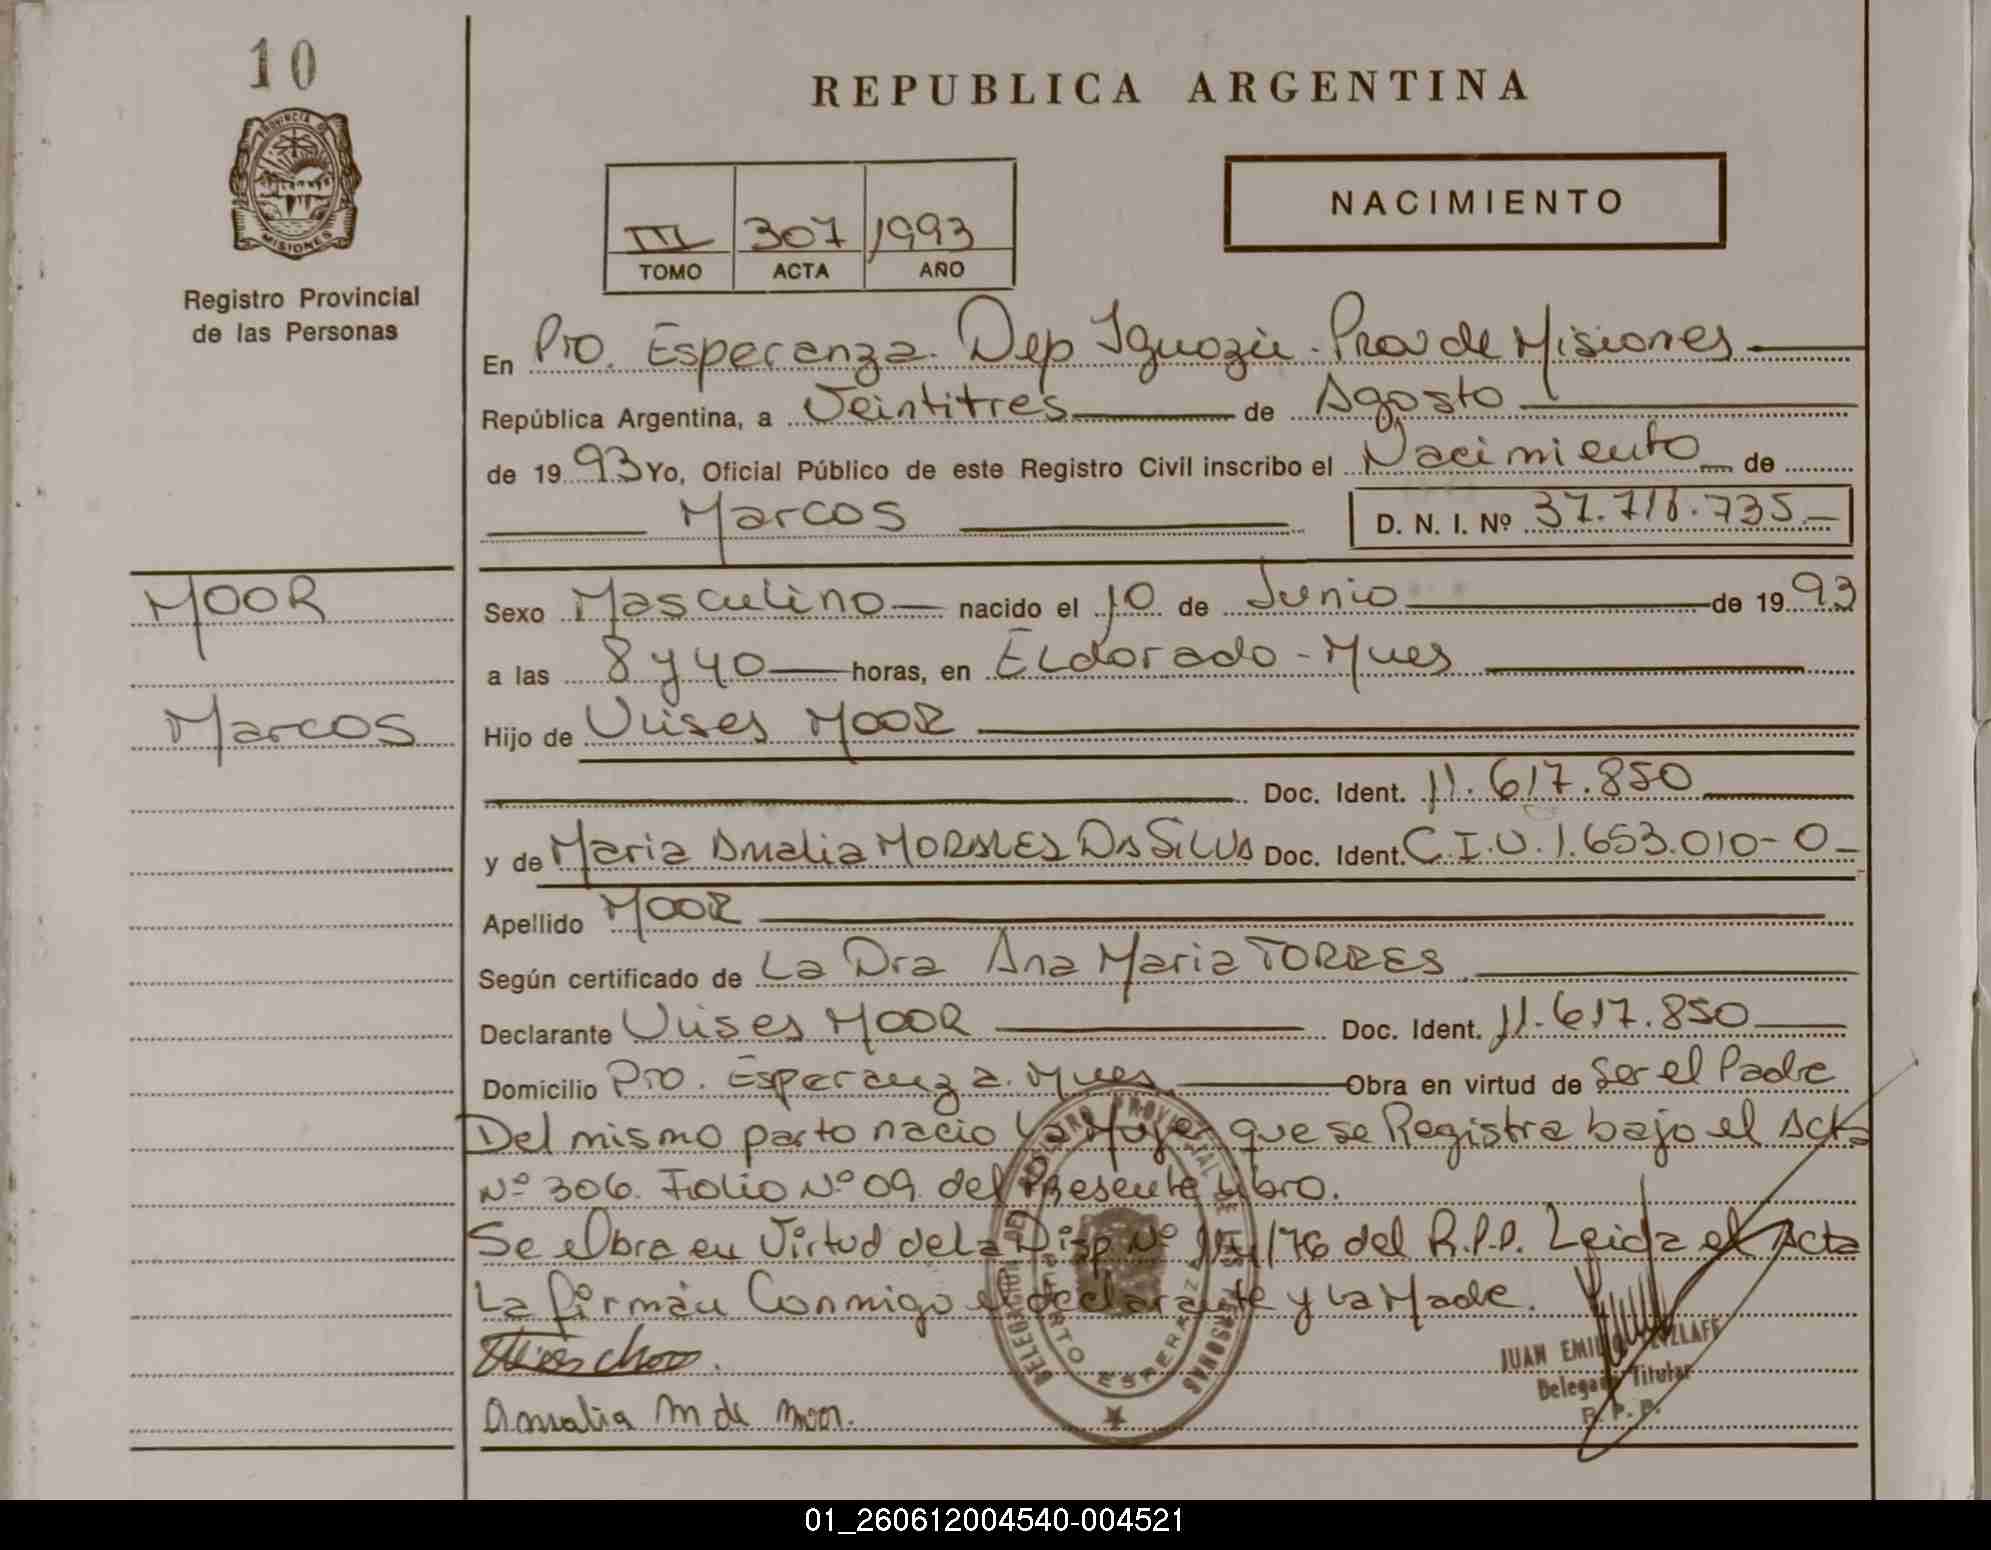 10
PROVINCIA DE
MISIONES
Registro Provincial
de las Personas
REPUBLICA ARGENTINA
III 307 1993
TOMO ACTA AÑO
NACIMIENTO
En Pto. Esperanza. Dep Iguazú - Prov de Misiones
República Argentina, a Veintitres de Agosto
de 1993 Yo, Oficial Público de este Registro Civil inscribo el Nacimiento de
Marcos D. N. I. Nº 37.718.735.-
MOOR
Marcos
Sexo Masculino nacido el 10 de Junio de 1993
a las 8 y 40 horas, en ELdorado - Mnes
Hijo de Ulises MOOR
Doc. Ident. 11.617.850
y de Maria Amalia MORALES DA SILVA Doc. Ident. C.I.U. 1.653.010-0-
Apellido MOOR
Según certificado de La Dra Ana Maria TORRES
Declarante Ulises MOOR Doc. Ident. 11.617.850
Domicilio Pto. Esperanza. Mnes Obra en virtud de Ser el Padre
Del mismo parto nacio La Mujer que se Registra bajo el Acta
Nº 306. Folio Nº 09. del Presente Libro.
Se Obra en Virtud de La Disp Nº /76 del R.P.P. Leida el Acta
La firman Conmigo el declarante y La Madre.
Amalia M de Moor.
DELEGACION DEL REGISTRO PROVINCIAL DE LAS PERSONAS
PUERTO ESPERANZA
JUAN EMILIO
Delegado Titular
R. P. P.
01_260612004540-004521